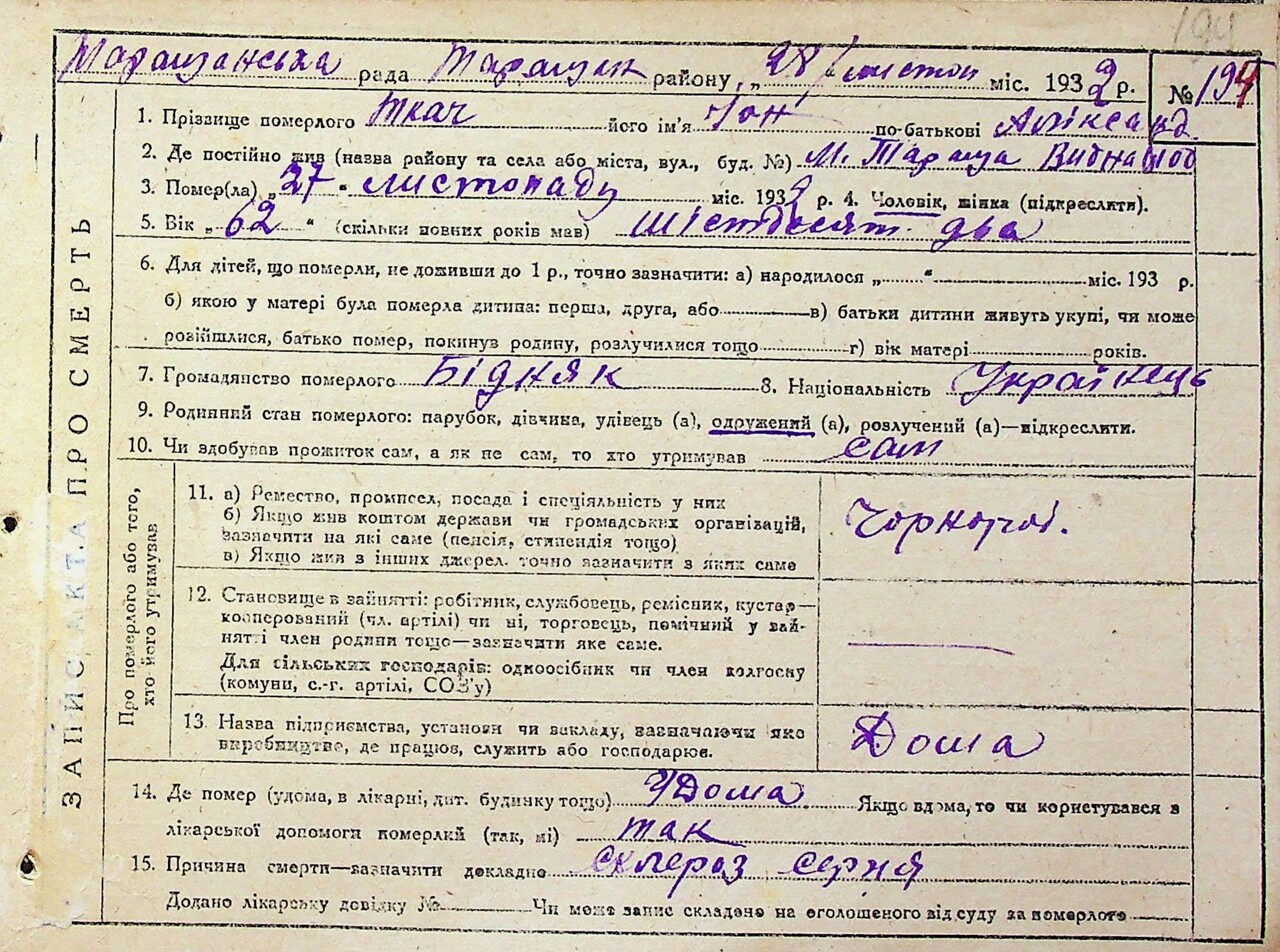 194
Таращанська рада Таращан району, „28/листоп міс. 1932 р.
№ 194
1. Прізвище померлого Ткач його ім'я Іон по-батькові Аліксанд
2. Де постійно жив (назва району та села або міста, вул., буд. №) М. Тараща
3. Помер(ла) „27" листопаду міс. 1932 р. 4. Чоловік, жінка (підкреслити).
5. Вік „62" (скільки повних років мав) шістдесят два
6. Для дітей, що померли, не доживши до 1 р., точно зазначити: а) народилося „ " міс. 193 р.
б) якою у матері була померла дитина: перша, друга, або в) батьки дитини живуть укупі, чи може
розійшлися, батько помер, покинув родину, розлучилися тощо г) вік матері років.
7. Громадянство померлого Бідняк 8. Національність Українець
9. Родинний стан померлого: парубок, дівчина, удівець (а), одружений (а), розлучений (а)—підкреслити.
10. Чи здобував прожиток сам, а як не сам, то хто утримував сам
ЗАПИС АКТА ПРО СМЕРТЬ
Про померлого або того,
хто його утримував
11. а) Ремество, промисел, посада і спеціяльність у них
б) Якщо жив коштом держави чи громадських організацій,
зазначити на які саме (пенсія, стипендія тощо)
в) Якщо жив з інших джерел, точно зазначити з яких саме
Чорнороб.
12. Становище в зайнятті: робітник, службовець, ремісник, кустар—
кооперований (чл. артілі) чи ні, торговець, помічний у зай-
нятті член родини тощо—зазначити яке саме.
Для сільських господарів: одноосібник чи член колгоспу
(комуни, с.-г. артілі, СОЗ'у)
13. Назва підприємства, установи чи закладу, зазначаючи яке
виробництво, де працює, служить або господарює.
Дома
14. Де помер (удома, в лікарні, дит. будинку тощо) У Дома Якщо вдома, то чи користувався з
лікарської допомоги померлий (так, ні) так
15. Причина смерти—зазначити докладно склероз серця
Додано лікарську довідку № Чи може запис складено на оголошеного від суду за померлого